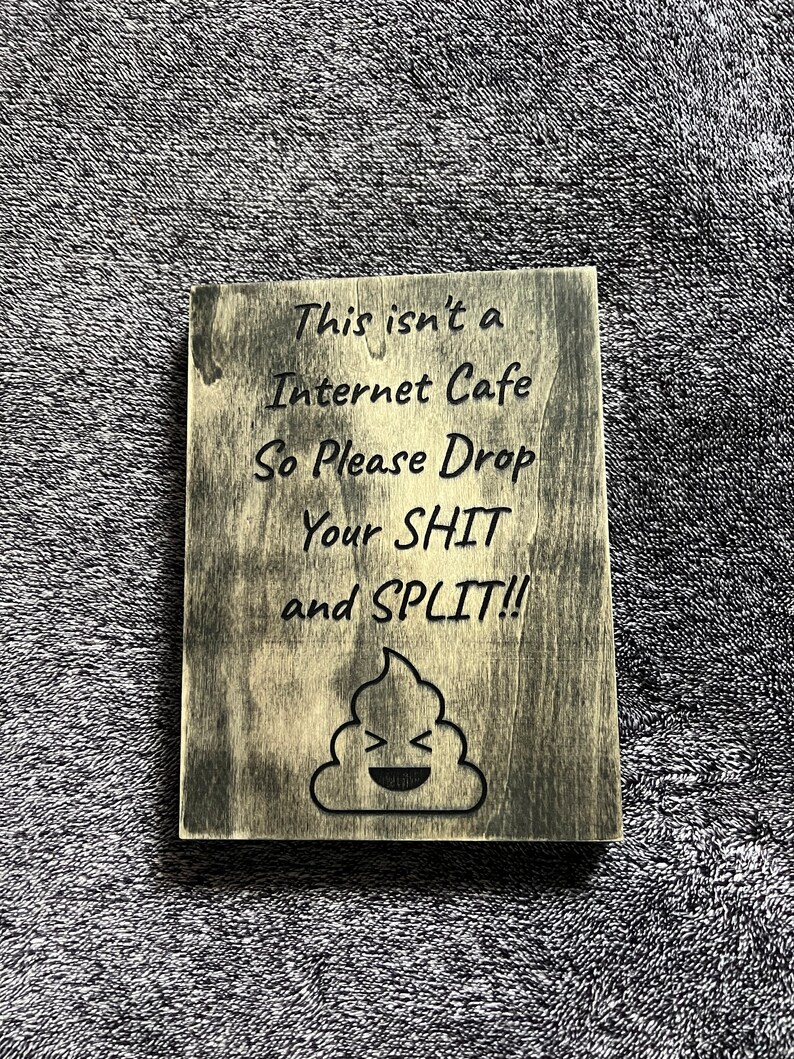 This isn't a
Internet Cafe
So Please Drop
Your SHIT
and SPLIT!!